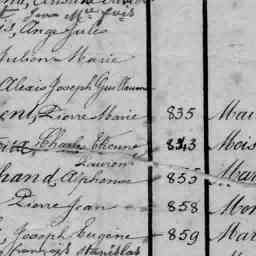 Jean Mie frçs
Ange Jules
Julien Marie
Alexis Joseph Guillaume
Pierre Marie 835 Mai
Charles Etienne 843 Mois
Laurent
Alphonse 855 Mar
Pierre Jean 858 Mon
Joseph Eugène 859 Mar
françois Stanislas